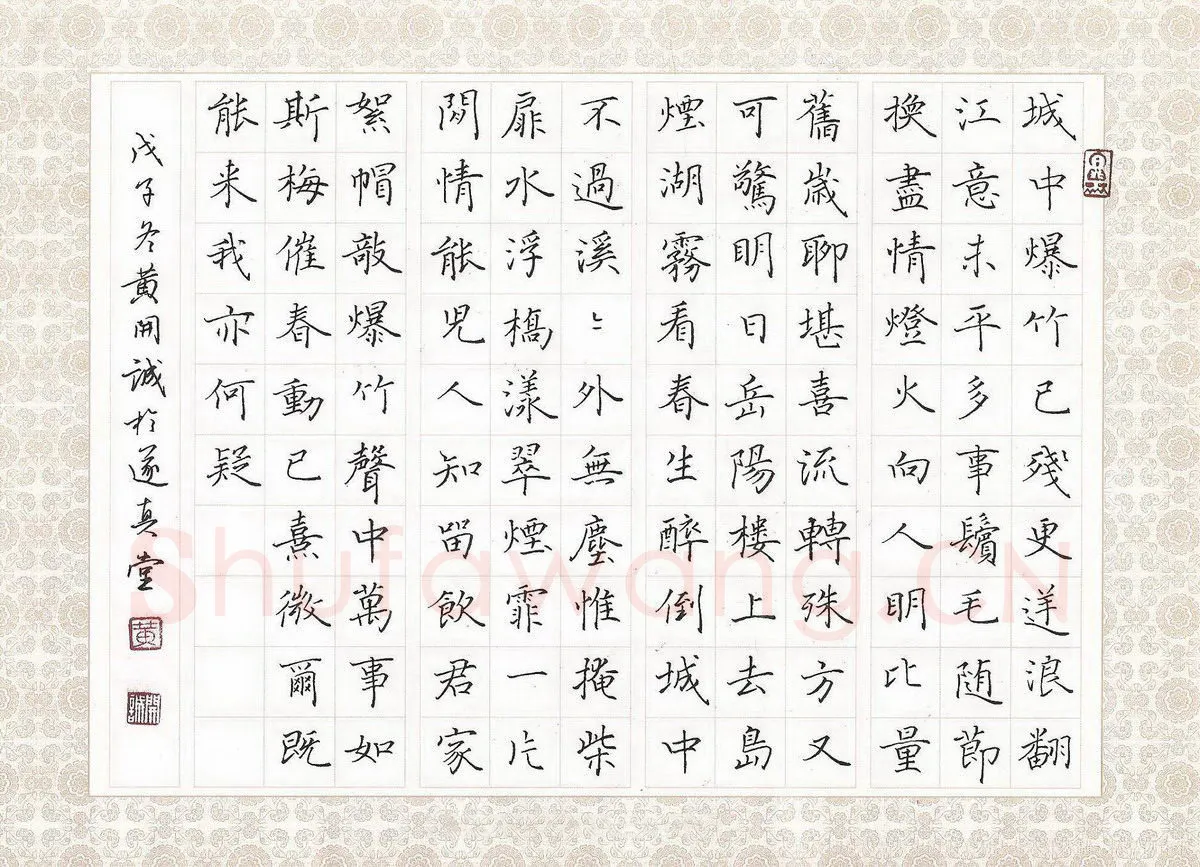 城中爆竹已殘更逆浪翻
江意未平多事鬢毛随節
換盡情燈火向人明比量
舊歲聊堪喜流轉殊方又
可驚明日岳陽楼上去島
煙湖霧看春生醉倒城中
不過溪〻外無塵惟掩柴
扉水浮橋漾翠煙霏一片
閑情能児人知留飲君家
絮帽敲爆竹聲中萬事如
斯梅催春動已熹微爾既
能来我亦何疑
戊子冬黄開誠於遂真堂
黄
開誠
Shufawang.CN